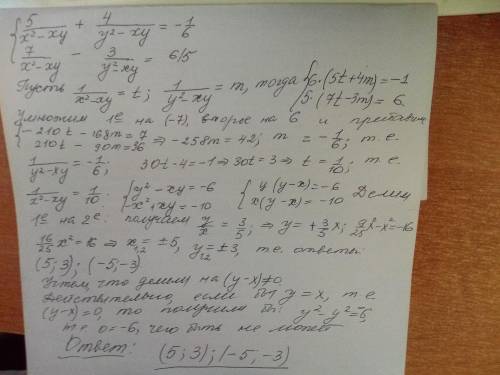 { 5/(x²-xy) + 4/(y²-xy) = -1/6
7/(x²-xy) - 3/(y²-xy) = 6/5
Пусть 1/(x²-xy) = t; 1/(y²-xy) = m, тогда { 6·(5t+4m)=-1
5·(7t-3m)=6.
Умножим 1е на (-7), второе на 6 и
{ -210t - 168m = 7
210t - 90m = 36 ⇒ -258m = 42; m = -1/6; т.е.
1/(y²-xy) = -1/6; 30t-4=-1 ⇒ 30t=3 ⇒ t = 1/10; т.е.
1/(x²-xy) = 1/10. { y²-xy=-6 { y(y-x)=-6 Делим
-x²+xy=-10 x(y-x)=-10
1е на 2е: получаем y/x = 3/5; ⇒ y=+3/5x; 9/25x²-x²=-16
16/25 x²=16 ⇒ x₁,₂=±5, y₁,₂=±3, т.е. ответы
(5;3); (-5;-3)
Учтем, что делили на (y-x)≠0
действительно, если бы y=x, т.е.
(y-x)=0, то получили бы: y²-y²=-6,
т.е. 0=-6, чего быть не может
Ответ: (5;3); (-5,-3)